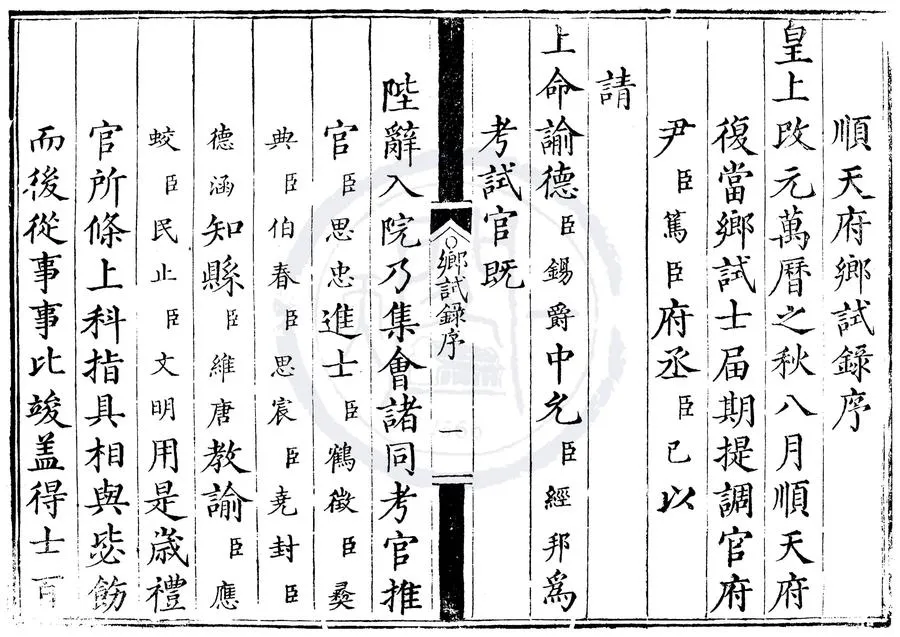 順天府鄉試錄序
皇上改元萬曆之秋八月順天府
復當鄉試士屆期提調官府
尹臣篤臣府丞臣已以
請
上命諭德臣錫爵中允臣經邦爲
考試官既
鄉試錄序 一
陛辭入院乃集會諸同考官推
官臣思忠進士臣鶴徵臣彛
典臣伯春臣思宸臣堯封臣
德涵知縣臣維唐教諭臣應
蛟臣民止臣文明用是歲禮
官所條上科指具相與毖飭
而後從事事比竣盖得士百